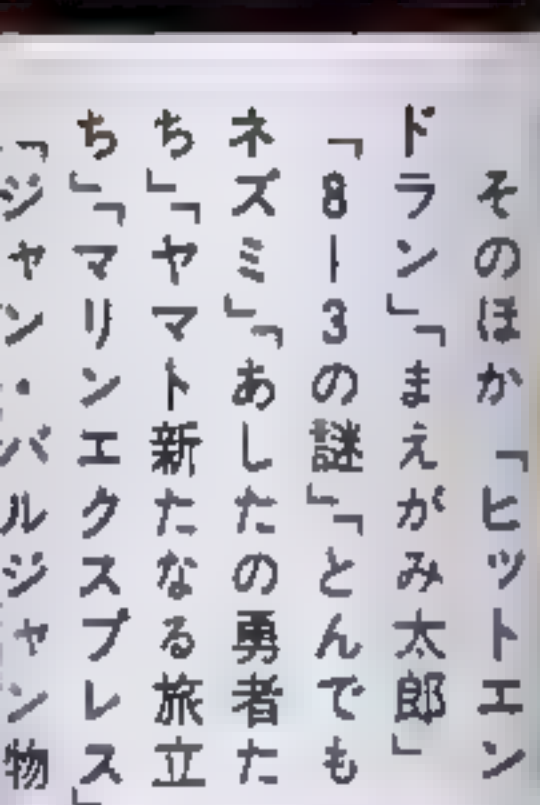 そのほか「ヒットエン
ドラン」「まえがみ太郎」
「8―3の謎」「とんでも
ネズミ」「あしたの勇者た
ち」「ヤマト新たなる旅立
ち」「マリンエクスプレス」
「ジャン・バルジャン物